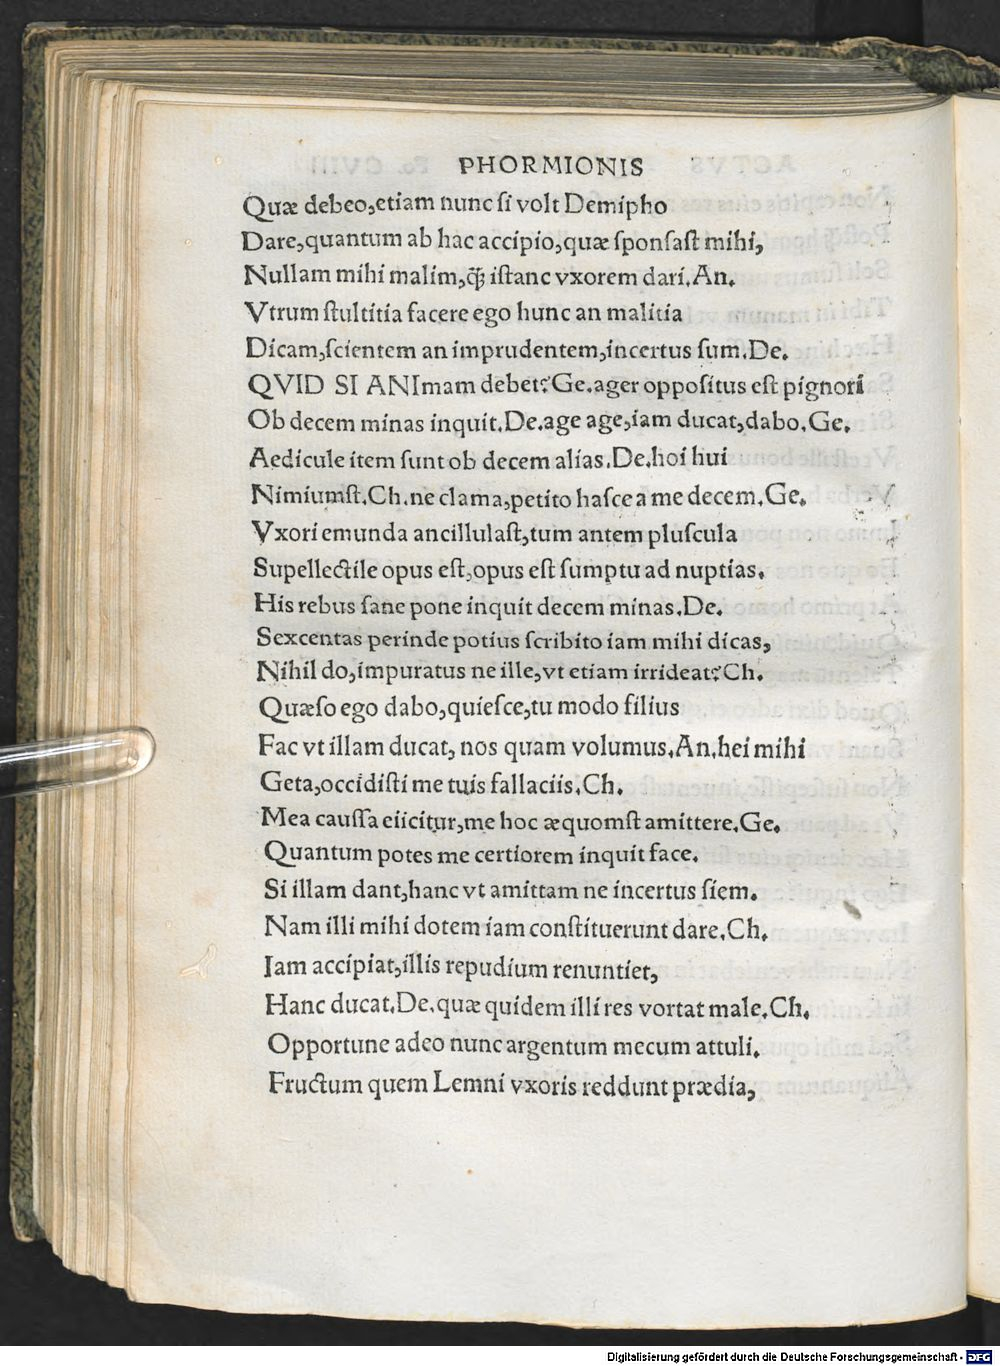 PHORMIONIS
Quæ debeo,etiam nunc ſi volt Demipho
Dare,quantum ab hac accipio,quæ ſponſaſt mihi,
Nullam mihi malim,ꝙ̃ iſtanc vxorem dari.An.
Vtrum ſtultitia facere ego hunc an malitia
Dicam,ſcientem an imprudentem,incertus ſum.De.
QVID SI ANImam debet?Ge.ager oppoſitus eſt pignori
Ob decem minas inquit.De.age age,iam ducat,dabo.Ge.
Aedicule item ſunt ob decem alias.De.hoi hui
Nimiumſt.Ch.ne clama,petito haſce a me decem.Ge.
Vxori emunda ancillulaſt,tum antem pluſcula
Supellectile opus eſt,opus eſt ſumptu ad nuptias.
His rebus ſane pone inquit decem minas.De.
Sexcentas perinde potius ſcribito iam mihi dicas,
Nihil do,impuratus ne ille,vt etiam irrideat?Ch.
Quæſo ego dabo,quieſce,tu modo filius
Fac vt illam ducat, nos quam volumus.An.hei mihi
Geta,occidiſti me tuis fallaciis.Ch.
Mea cauſſa eiicitur,me hoc æquomſt amittere.Ge.
Quantum potes me certiorem inquit face.
Si illam dant,hanc vt amittam ne incertus ſiem.
Nam illi mihi dotem iam conſtituerunt dare.Ch.
Iam accipiat,illis repudium renuntiet,
Hanc ducat.De.quæ quidem illi res vortat male.Ch.
Opportune adeo nunc argentum mecum attuli.
Fructum quem Lemni vxoris reddunt prædia,
Digitalisierung gefördert durch die Deutsche Forschungsgemeinschaft - DFG